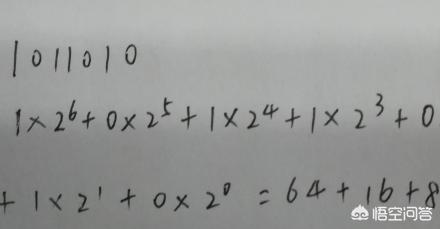 1011010
1×2⁶+0×2⁵+1×2⁴+1×2³+0
+1×2¹+0×2⁰=64+16+8
悟空问答